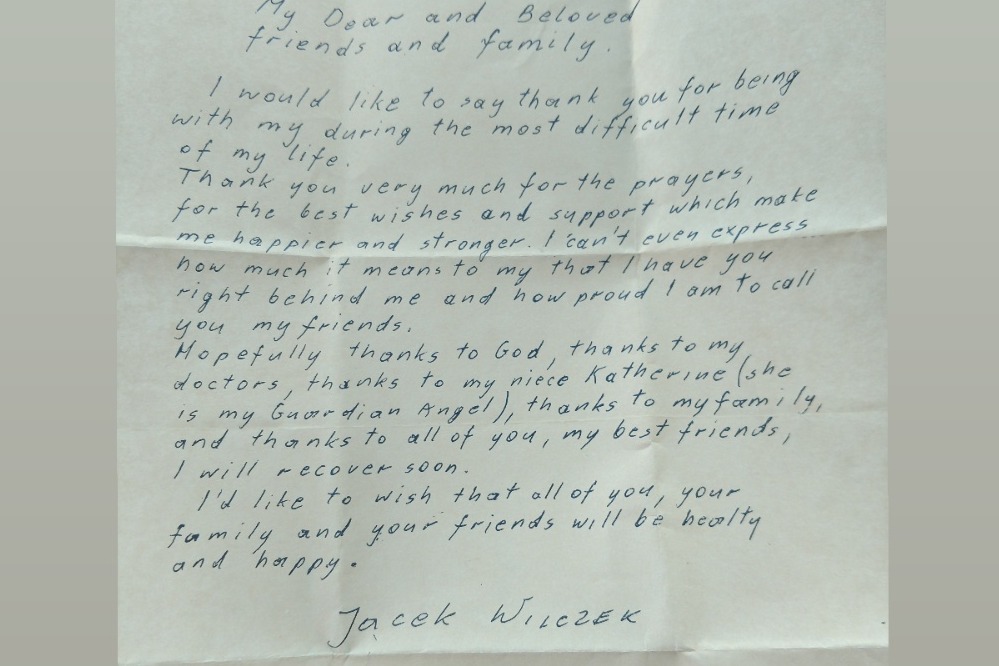 My Dear and Beloved
friends and family.
I would like to say thank you for being
with my during the most difficult time
of my life.
Thank you very much for the prayers,
for the best wishes and support which make
me happier and stronger. I can't even express
how much it means to my that I have you
right behind me and how proud I am to call
you my friends.
Hopefully thanks to God, thanks to my
doctors, thanks to my niece Katherine (she
is my Guardian Angel), thanks to my family,
and thanks to all of you, my best friends,
I will recover soon.
I'd like to wish that all of you, your
family and your friends will be healty
and happy.
Jacek WILCZEK